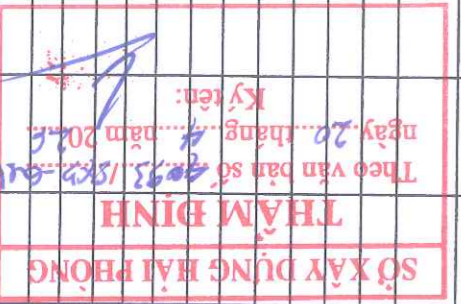 SỞ XÂY DỰNG HẢI PHÒNG
THẨM ĐỊNH
Theo văn bản số /SXD-
ngày 20 tháng 4 năm 20
Ký tên: